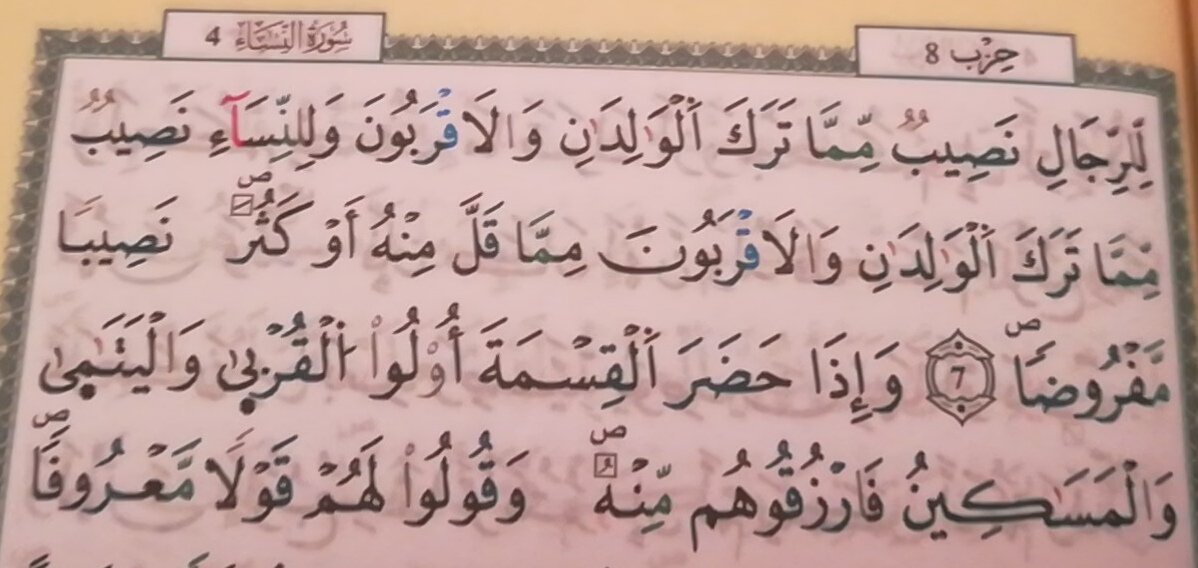 سُورَةُ النِّسَاءِ 4
حِزْب 8
لِّلرِّجَالِ نَصِيبٌ مِّمَّا تَرَكَ اَ۬لْوَٰلِدَٰنِ وَالَاقْرَبُونَ وَلِلنِّسَآءِ نَصِيبٌ
مِّمَّا تَرَكَ اَ۬لْوَٰلِدَٰنِ وَالَاقْرَبُونَ مِمَّا قَلَّ مِنْهُ أَوْ كَثُرَۖ نَصِيباٗ
مَّفْرُوضاٗۖ 7 وَإِذَا حَضَرَ اَ۬لْقِسْمَةَ أُوْلُواْ اُ۬لْقُرْب۪ىٰ وَالْيَتَٰم۪ىٰ
وَالْمَسَٰكِينُ فَارْزُقُوهُم مِّنْهُۖ وَقُولُواْ لَهُمْ قَوْلاٗ مَّعْرُوفاٗۖ